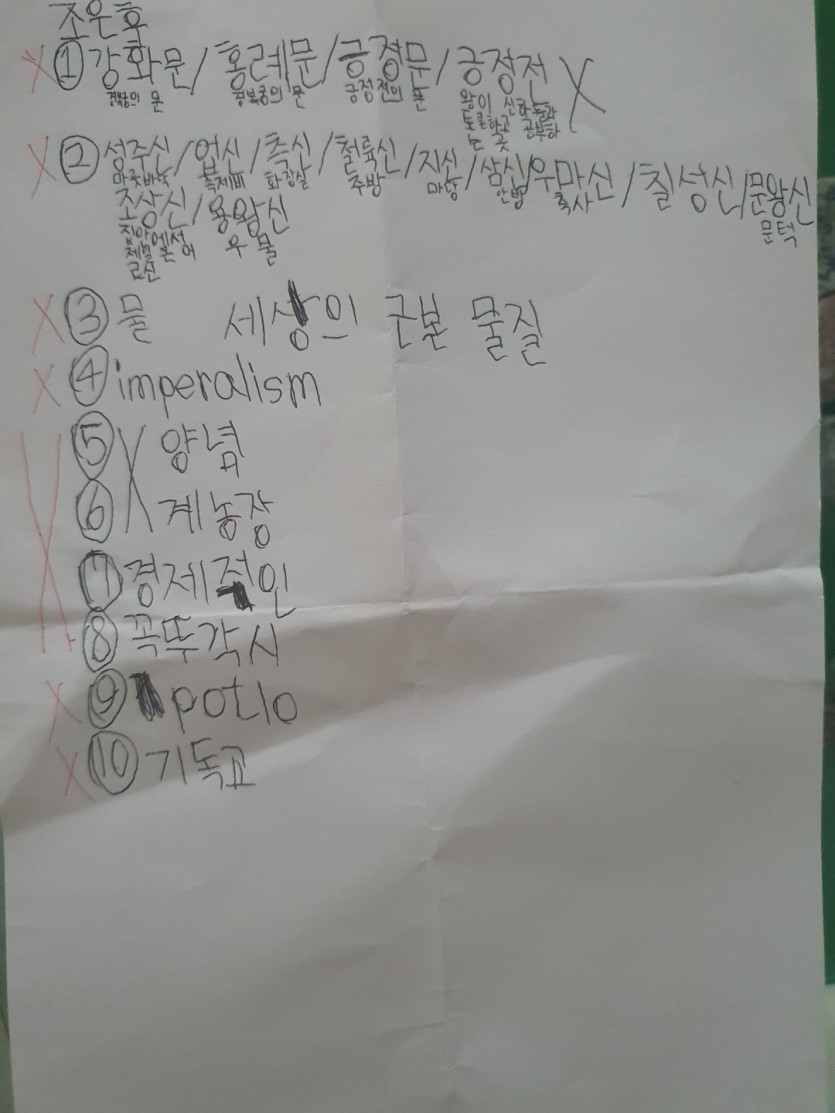 조은후
X ① 강화문 / 홍례문 / 긍정문 / 긍정전 X
경복궁의 문 경복궁의 문 긍정전의 문 왕이 신하들과
토론하고 공부하
는 곳
X ② 성주신 / 업신 / 측신 / 철륭신 / 지신 / 삼신 / 우마신 / 칠성신 / 문왕신
족제비 화장실 주방 마당 안방 축사 문턱
조상신 / 용왕신
집안에서 우물
X ③ 물 세상의 근본 물질
X ④ imperalism
⑤ 양념
⑥ 계농장
⑦ 경제적인
⑧ 꼭뚜각시
X ⑨ potlo
X ⑩ 기독교